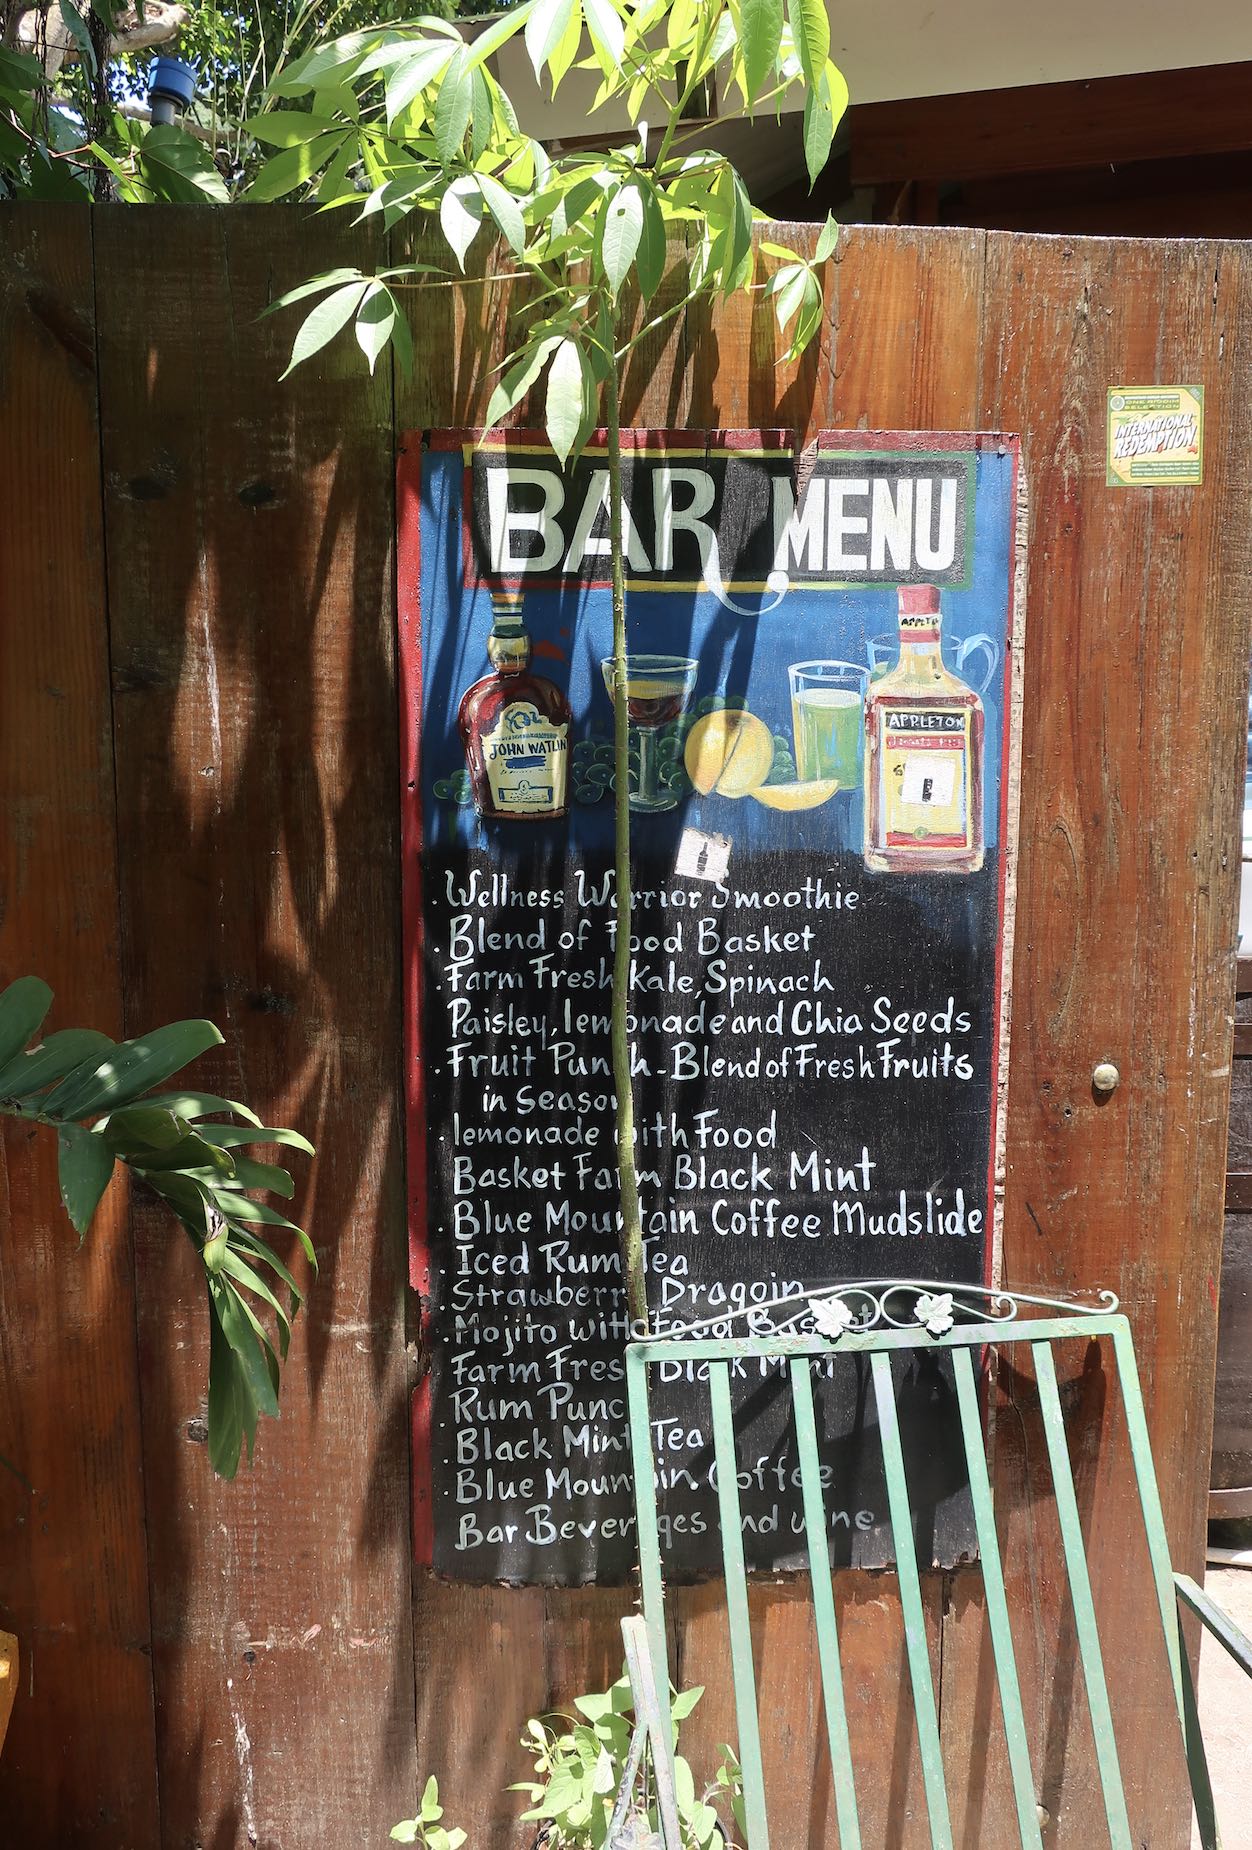 BAR MENU
APPLETON
JOHN WATLIN
APPLETON
INTERNATIONAL
REDEMPTION
ONE RIDDIM
SELECTION
. Wellness Warrior Smoothie
. Blend of Food Basket
. Farm Fresh Kale, Spinach
Paisley, lemonade and Chia Seeds
. Fruit Punch - Blend of Fresh Fruits
in Season
. lemonade with Food
Basket Farm Black Mint
. Blue Mountain Coffee Mudslide
. Iced Rum Tea
. Strawberry Dragoin
. Mojito with Food Basket
Farm Fresh Black Mint
. Rum Punch
. Black Mint Tea
. Blue Mountain Coffee
Bar Beverages and wine